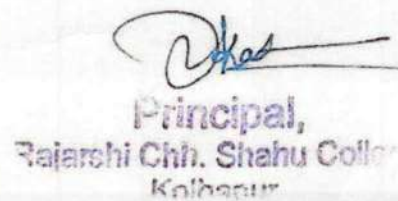 Principal,
Rajarshi Chh. Shahu
Kolhapur